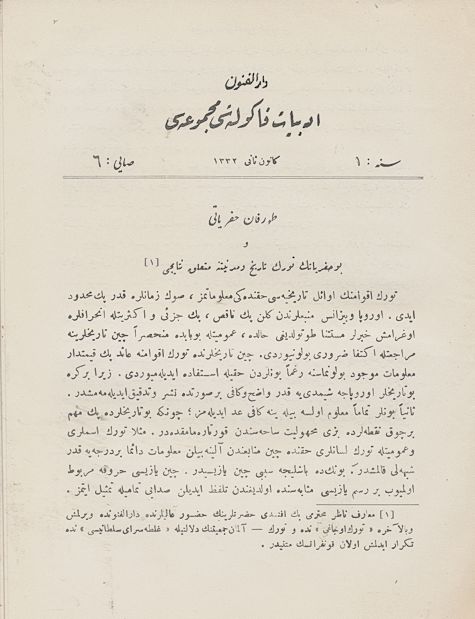 دار الفنون
ادبیات فاكولته‌سی مجموعه‌سی
سنه : ١ كانون ثانی ١٣٣٢ صایی : ٦
طورفان حفریاتی
و
بو حفریاتك تورك تاریخ و مدنیتنه متعلق نتایجی [١]
تورك اقوامنك اوائل تاریخیه‌سی حقنده‌كی معلوماتمز ، صوك زمانلره قدر پك محدود
ایدی . اوروپا و بیزانس منبعلرندن كلن پك ناقص ، پك جزئی و اكثریتله انحرافلره
اوغرامش خبرلر مستثنا طوتولدیغی حالده ، عمومیتله بوبابده منحصراً چین تاریخلرینه
مراجعتله اكتفا ضروری بولنویوردی. چین تاریخلرنده تورك اقوامنه عائد پك قیمتدار
معلومات موجود بولونماسنه رغماً بونلردن حقیله استفاده ایدیله‌میوردی . زیرا بر كره
بو تاریخلر اوروپاجه شیمدی‌یه قدر واضح و كافی بر صورتده نشر و تدقیق ایدیله‌مه‌مشدر .
ثانیاً بونلر تماماً معلوم اولسه بیله ینه كافی عد ایدیله‌مز ؛ چونكه بو تاریخلرده پك مهم
بر چوق نقطه‌لرده بزی مجهولیت ساحه‌سندن قورتارمامقده‌در . مثلا تورك اسملری
و عمومیتله تورك لسانلری حقنده چین منابعندن آلینه‌بیلن معلومات دائما بر درجه‌یه قدر
شبهه‌لی قالمشدر . بونك‌ده باشلیجه سببی چین یازیسیدر . چین یازیسی حروفه مربوط
اولمیوب بر رسم یازیسی مثابه‌سنده اولدیغندن تلفظ ایدیلن صدایی تمامیله تمثیل ایتمز .
[١] معارف ناظر محترمی بك افندی حضرتلرینك حضور عالیلرنده دارالفنونده ویرلمش
و بالآخره « تورك اوجاغی » نده و تورك — آلمان جمعیتنك دلالتیله « غلطه‌سرای سلطانیسی » نده
تكرار ایدلمش اولان قونفرانسك متنیدر .